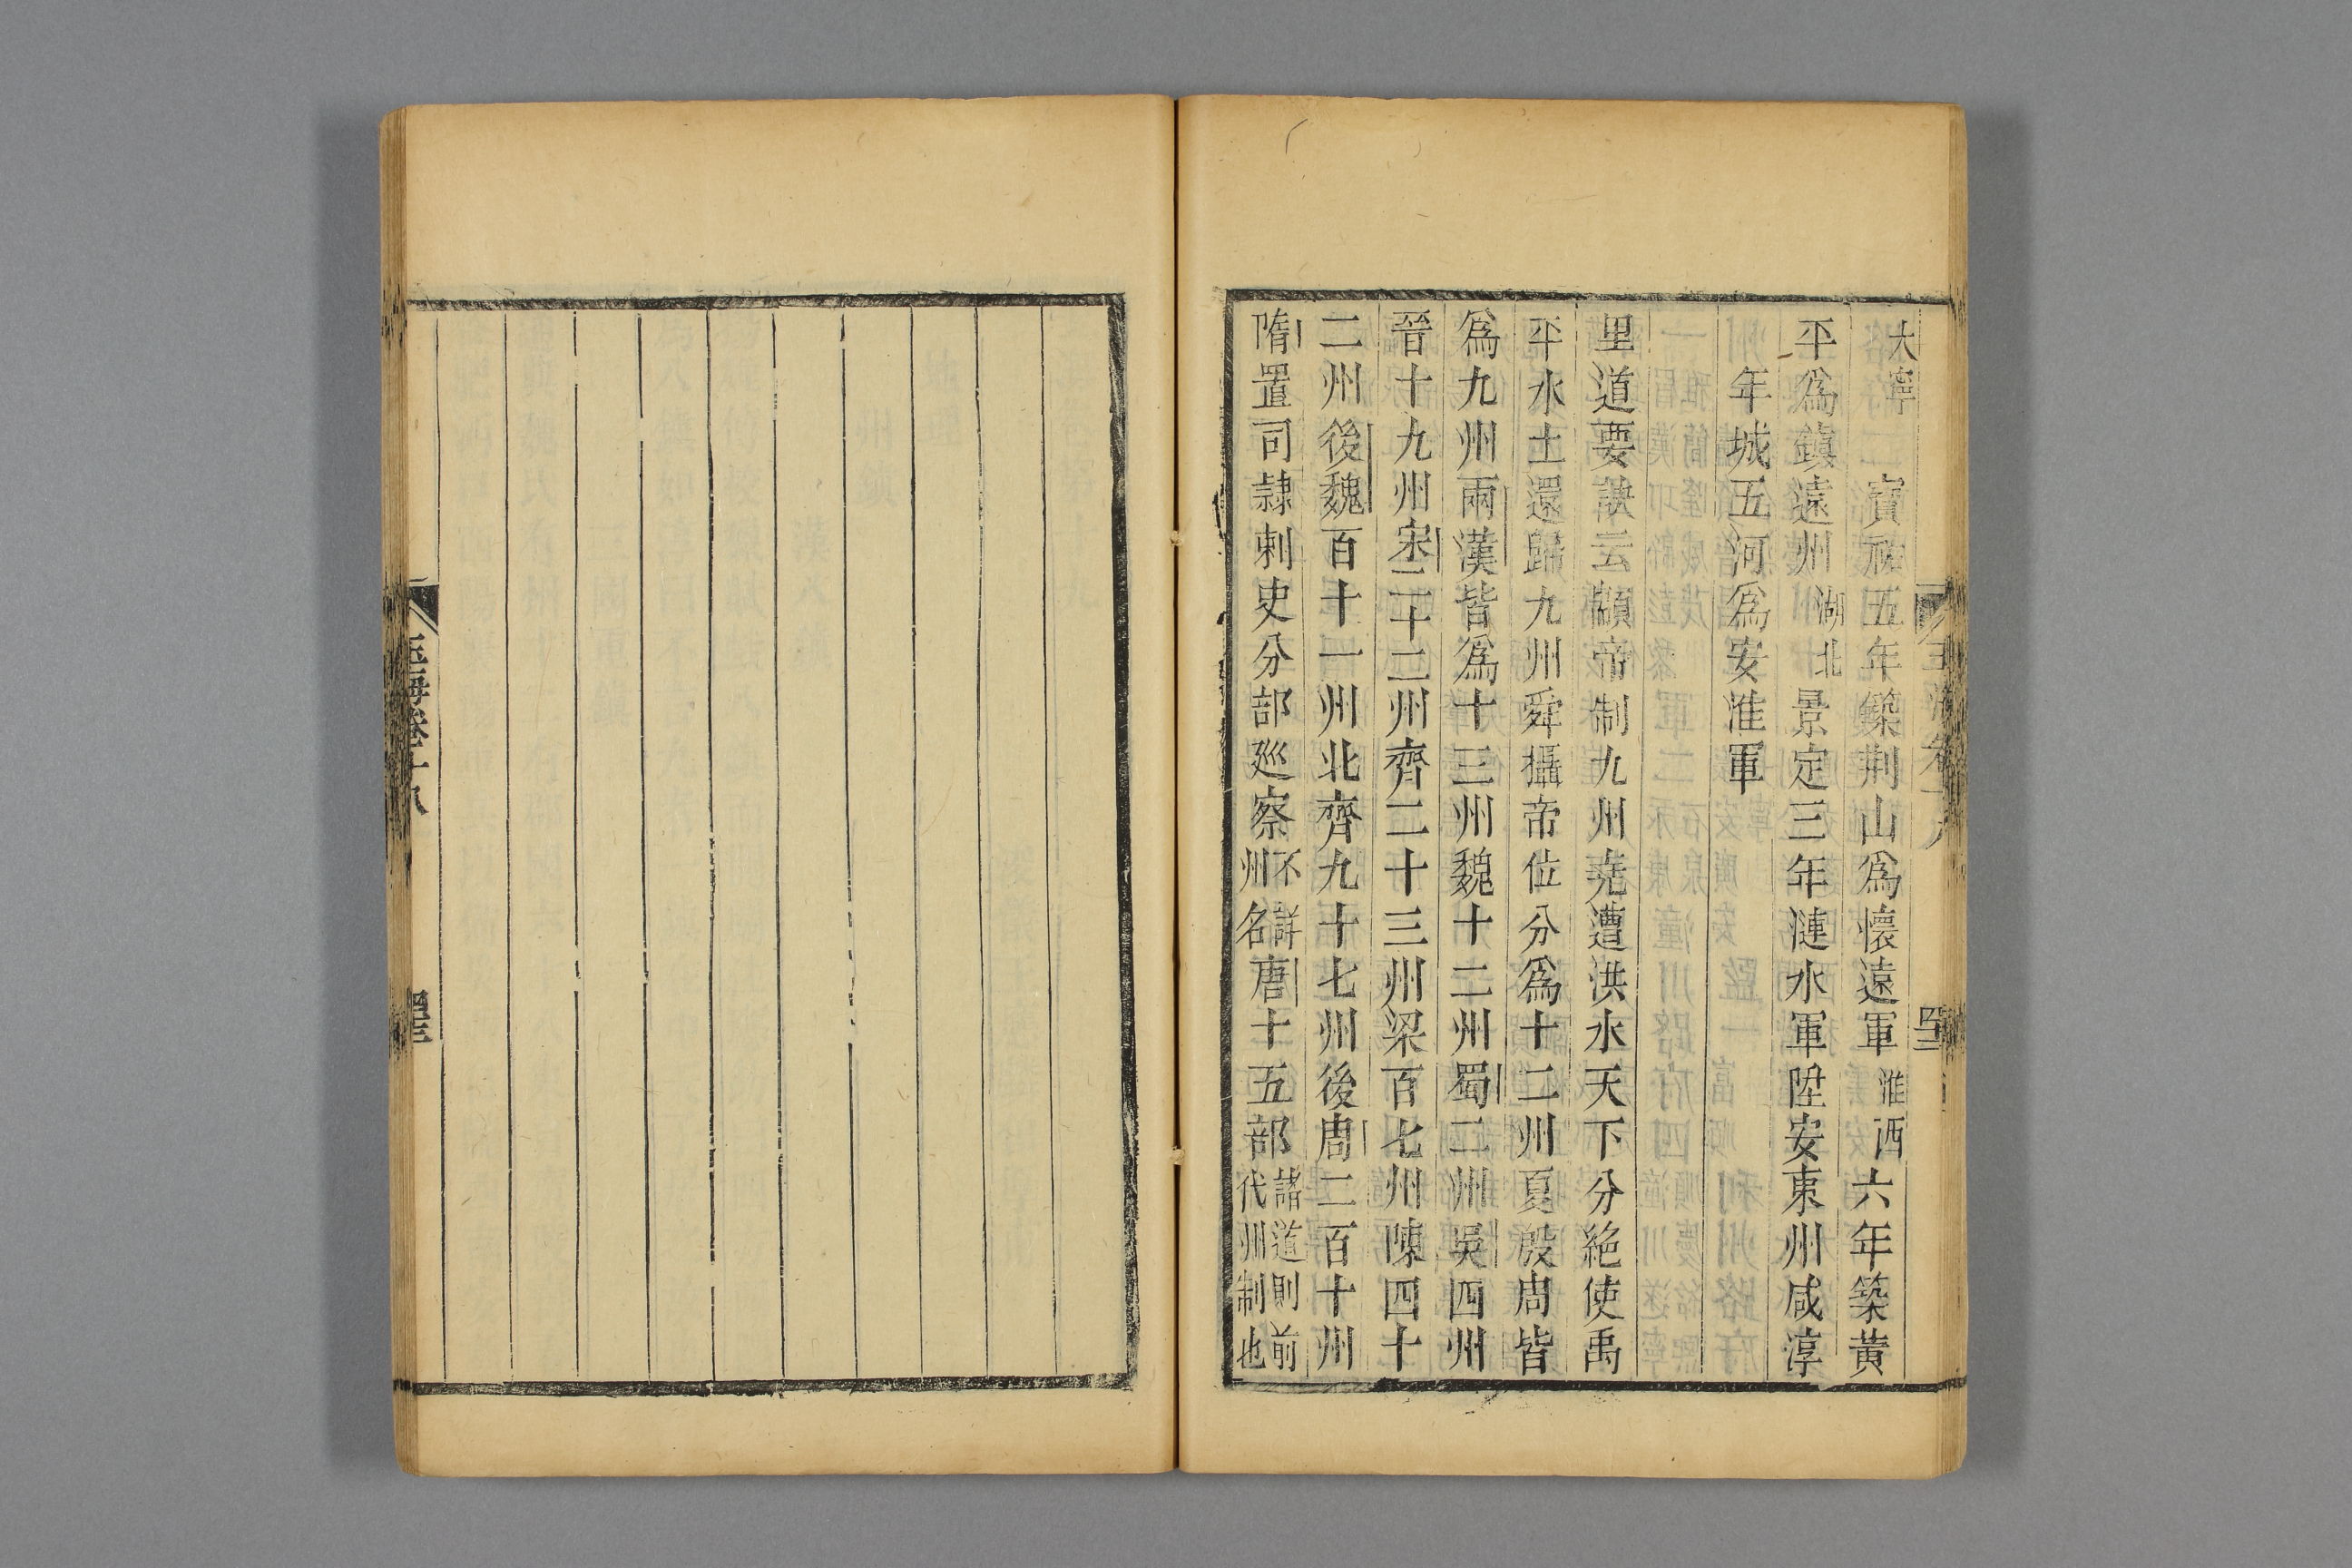 大寧　寶祐五年築荆山爲懷遠軍淮西六年築黄
平爲鎮遠州湖北景定三年漣水軍陞安東州咸淳
年城五河爲安淮軍
里道要訣云顓帝制九州堯遭洪水天下分絶使禹
平水土還歸九州舜攝帝位分爲十二州夏殷周皆
爲九州兩漢皆爲十三州魏十二州蜀二州吳四州
晉十九州宋二十二州齊二十三州梁百七州陳四十
二州後魏百十一州北齊九十七州後周二百十州
隋置司隷刺史分部廵察不詳州名唐十五部諸道則前代州制也
玉海卷十八